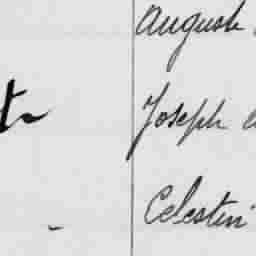 Auguste
Joseph
Celestin